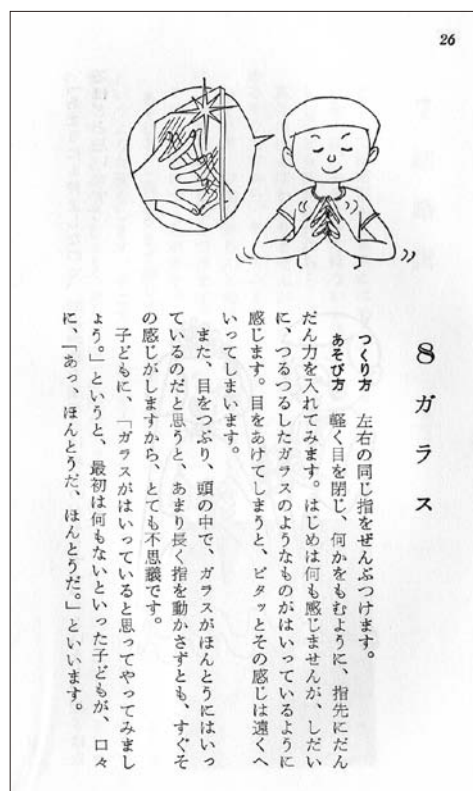 26
8 ガラス
つくり方 左右の同じ指をぜんぶつけます。
あそび方 軽く目を閉じ、何かをもむように、指先にだん
だん力を入れてみます。はじめは何も感じませんが、しだい
に、つるつるしたガラスのようなものがはいっているように
感じます。目をあけてしまうと、ピタッとその感じは遠くへ
いってしまいます。
また、目をつぶり、頭の中で、ガラスがほんとうにはいっ
ているのだと思うと、あまり長く指を動かさずとも、すぐそ
の感じがしますから、とても不思議です。
子どもに、「ガラスがはいっていると思ってやってみまし
ょう。」というと、最初は何もないといった子どもが、口々
に、「あっ、ほんとうだ、ほんとうだ。」といいます。